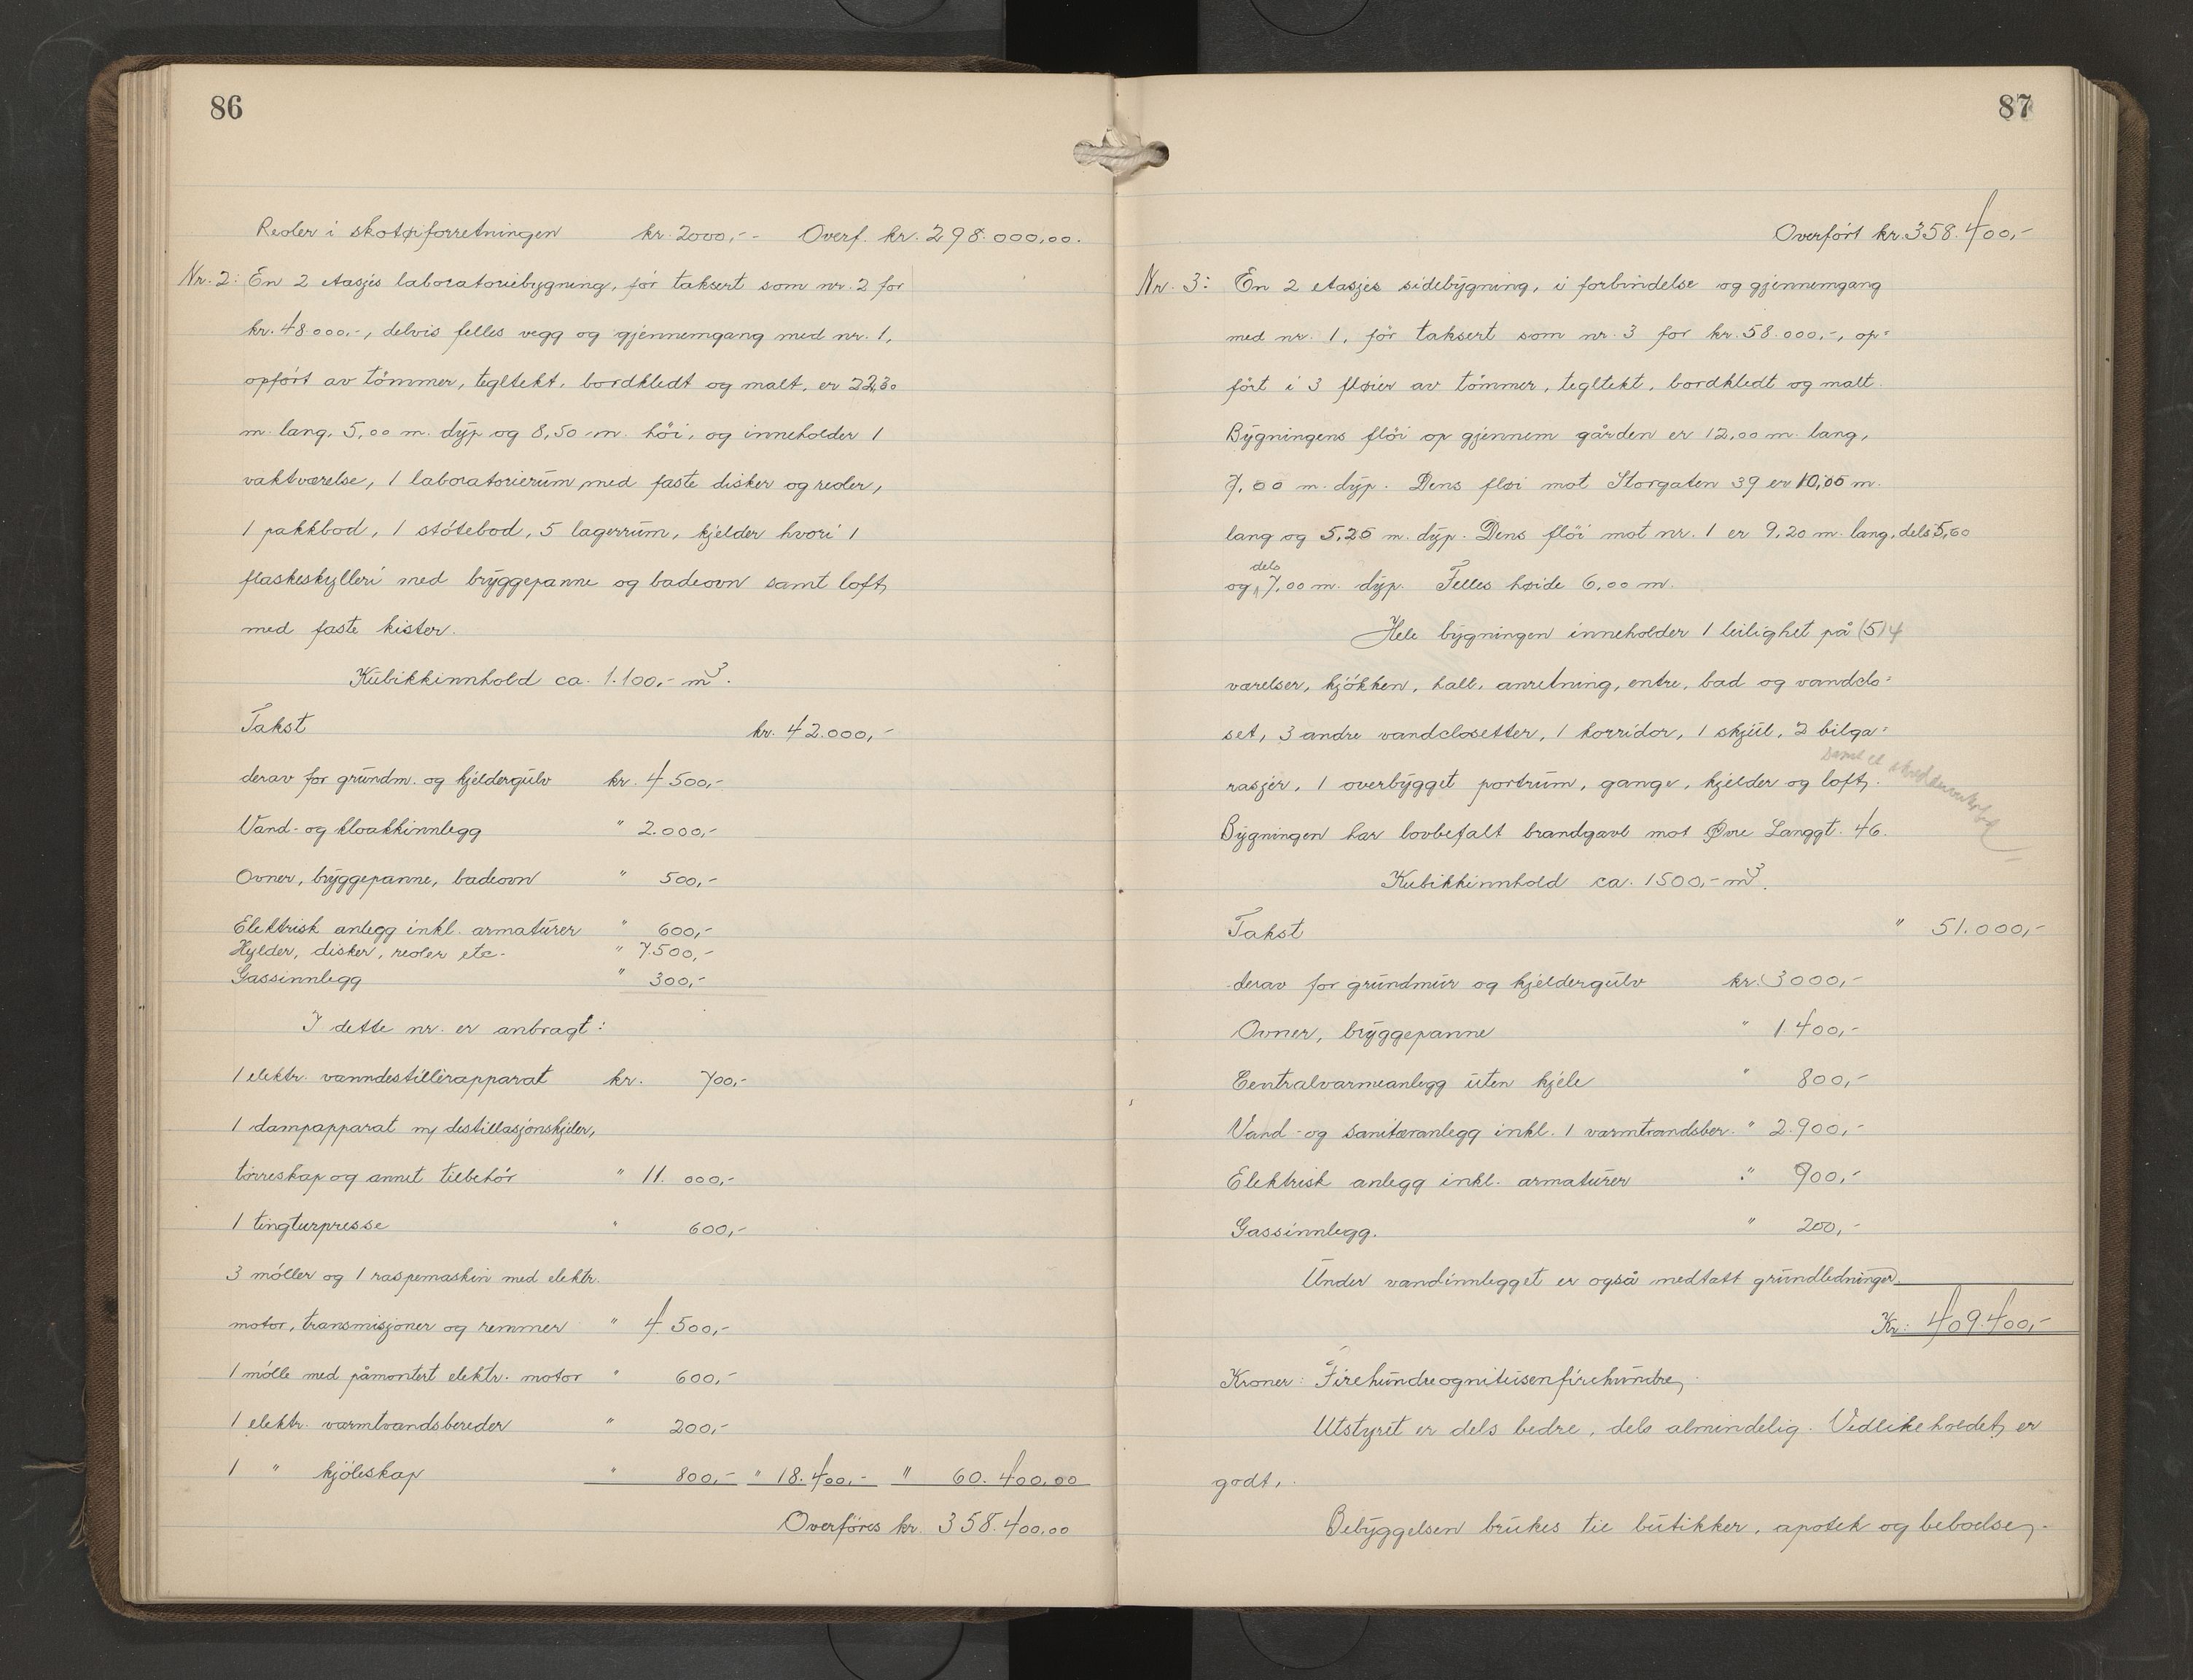 86
Reoler i skotøiforretningen kr. 2000,-- Overf. kr. 298.000,00.
Nr. 2: En 2 etasjes laboratoriebygning, før taksert som nr. 2 for
kr. 48.000,-, delvis felles vegg og gjennemgang med nr. 1,
opført av tømmer, tegltekt, bordkledt og malt, er 22,30
m. lang, 5,00 m. dyp og 8,50 m. høi, og inneholder 1
vaktværelse, 1 laboratorierum med faste disker og reoler,
1 pakkbod, 1 støtebod, 5 lagerrum, kjelder hvori 1
flaskeskylleri med bryggepanne og badeovn samt loft
med faste kister.
Kubikkinnhold ca. 1.100,- m³.
Takst kr. 42.000,-
derav for grundm. og kjeldergulv kr. 4 500,-
Vand- og kloakkinnlegg " 2.000,-
Ovner, bryggepanne, badeovn " 500,-
Elektrisk anlegg inkl. armaturer " 600,-
Hylder, disker, reoler etc. " 7.500,-
Gassinnlegg " 300,-
I dette nr. er anbragt:
1 elektr. vanndestillerapparat kr. 700,-
1 dampapparat m/ destillasjonskjeler,
tørreskap og annet tilbehør " 11. 000,-
1 tingturpresse " 600,-
3 møller og 1 raspemaskin med elektr.
motor, transmisjoner og remmer " 4 500,-
1 mølle med påmontert elektr. motor " 600,-
1 elektr. varmtvandsbereder " 200,-
1 " kjøleskap " 800,- " 18.400,- " 60.400,00
Overføres kr. 358.400,00
87
Overført kr. 358.400,-
Nr. 3: En 2 etasjes sidebygning, i forbindelse og gjennemgang
med nr. 1, før taksert som nr. 3 for kr. 58.000,-, op=
ført i 3 fløier av tømmer, tegltekt, bordkledt og malt.
Bygningens fløi op gjennem gården er 12,00 m. lang,
7,00 m. dyp. Dens fløi mot Storgaten 39 er 10,00 m.
lang og 5,25 m. dyp. Dens fløi mot nr. 1 er 9,20 m. lang, dels 5,60
og dels 7,00 m. dyp. Felles høide 6,00 m.
Hele bygningen inneholder 1 leilighet på (5) 4
værelser, kjøkken, hall, anretning, entre, bad og vandclo=
set, 3 andre vandclosetter, 1 korridor, 1 skjul, 2 bilga=
rasjer, 1 overbygget portrum, gange, kjelder og loft.
samt et
Bygningen har lovbefalt brandgavl mot Øvre Langgt. 46.
Kubikkinnhold ca. 1500,- m³.
Takst " 51.000,-
derav for grundmur og kjeldergulv kr. 3000,-
Ovner, bryggepanne " 1.400,-
Centralvarmeanlegg uten kjele " 800,-
Vand- og sanitæranlegg inkl. 1 varmtvandsber. " 2.900,-
Elektrisk anlegg inkl. armaturer " 900,-
Gassinnlegg. " 200,-
Under vandinnlegget er også medtatt grundledninger
Kr: 409.400,-
Kroner: Firehundreognitusenfirehundre,
Utstyret er dels bedre, dels almindelig. Vedlikeholdet er
godt.
Bebyggelsen brukes til butikker, apotek og beboelse.